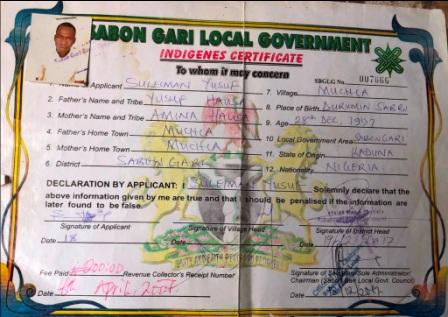 SABON GARI LOCAL GOVERNMENT
INDIGENES CERTIFICATE
To whom it may concern
SBGLG No 007666
1. Name of Applicant SULEIMAN YUSUF
7. Village MUCHIA
2. Father's Name and Tribe YUSUF HAUSA
8. Place of Birth
3. Mother's Name and Tribe AMINA HAUSA
9. Age 28th DEC,
4. Father's Home Town MUCHIA
10 Local Government Area SABON GARI
5. Mother's Home Town MUCHIA
11. State of Origin KADUNA
6. District SABON GARI
12. Nationality NIGERIA
DECLARATION BY APPLICANT: I SULEIMAN YUSUF Solemnly declare that the
above information given by me are true and that I should be penalised if the information are
later found to be false.
Signature of Applicant
Signature of Village Head
Signature of District Head
Date 18
Date
Date
Fee Paid
Revenue Collector's Receipt Number
Signature of Sole Administrator/
Chairman (Sabon Gari Local Govt. Council)
Date April,
Date